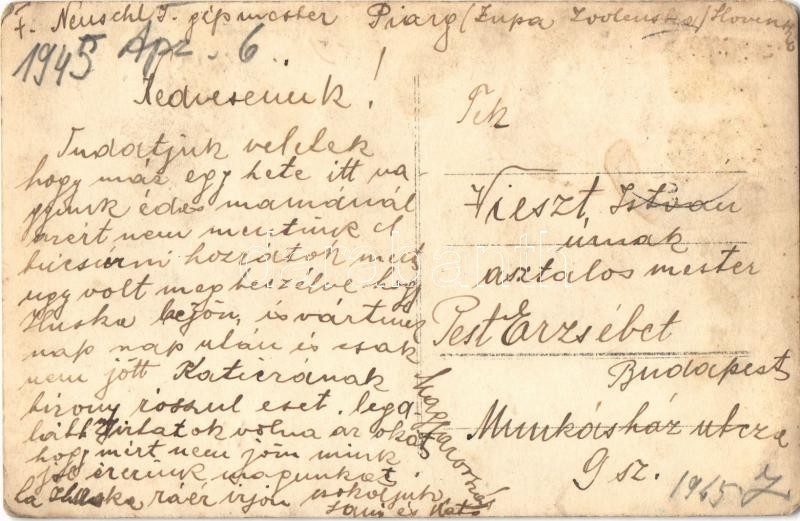 F. Neuschl J. gépmester Piarg (Zupa Zvolenska) Slovensko
1945 Apr. 6.
Kedveseink!
Tudatjuk veletek
hogy már egy hete itt va-
gyunk édes mamánál
azért nem mentünk el
bucsuzni hozzátok mert
ugy volt megbeszélve hogy
Iluska bejön, és vártuk
nap nap után és csak
nem jött Katicának
bizony rosszul eset. lega-
lább irhatok volna az okát
hogy mért nem jön mink
jól érezzük magunkat.
ha Iluska ráér irjon csokoljuk
Jani és Kató
Magyarország
Tek
Vieszt István
úrnak
asztalos mester
Pest Erzsébet
Budapest
Munkásház utcza
9 sz.
1945
darabanth